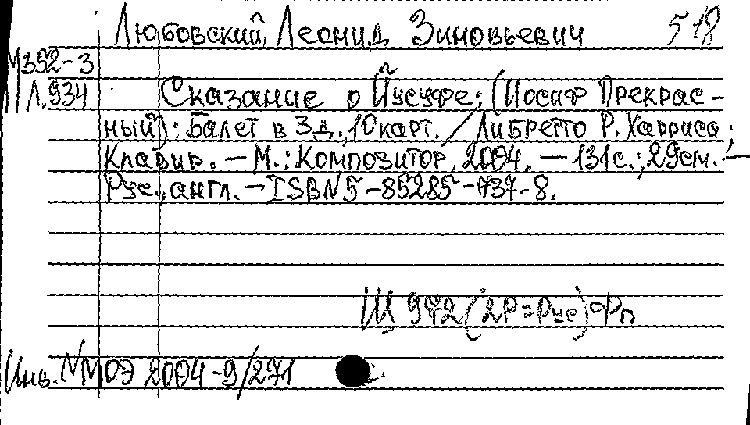 Любовский, Леонид Зиновьевич 518
М352-3
Л.934 Сказание о Йусуфе: (Иосиф Прекрас-
ный): Балет в 3д., 10карт. / Либретто Р. Харриса;
Клавир. – М.: Композитор, 2004. – 131с.; 29см. –
Рус., англ. – ISBN 5-85285-737-8.
Щ 972(2Р=Рус)
Инв. NМОЭ 2004-9/271